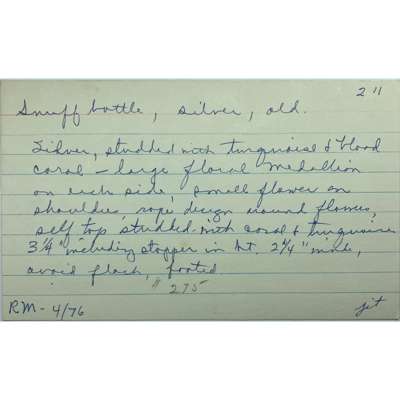 2 11
Snuff bottle, silver, old.
Silver, studded with turquoise & blood
coral - large floral medallion
on each side, small flower on
shoulder, rope design around flowers,
self top studded with coral & turquoise
3 1/4" including stopper in ht. 2 1/4" wide,
ovoid flask, footed
" 275
RM - 4/76